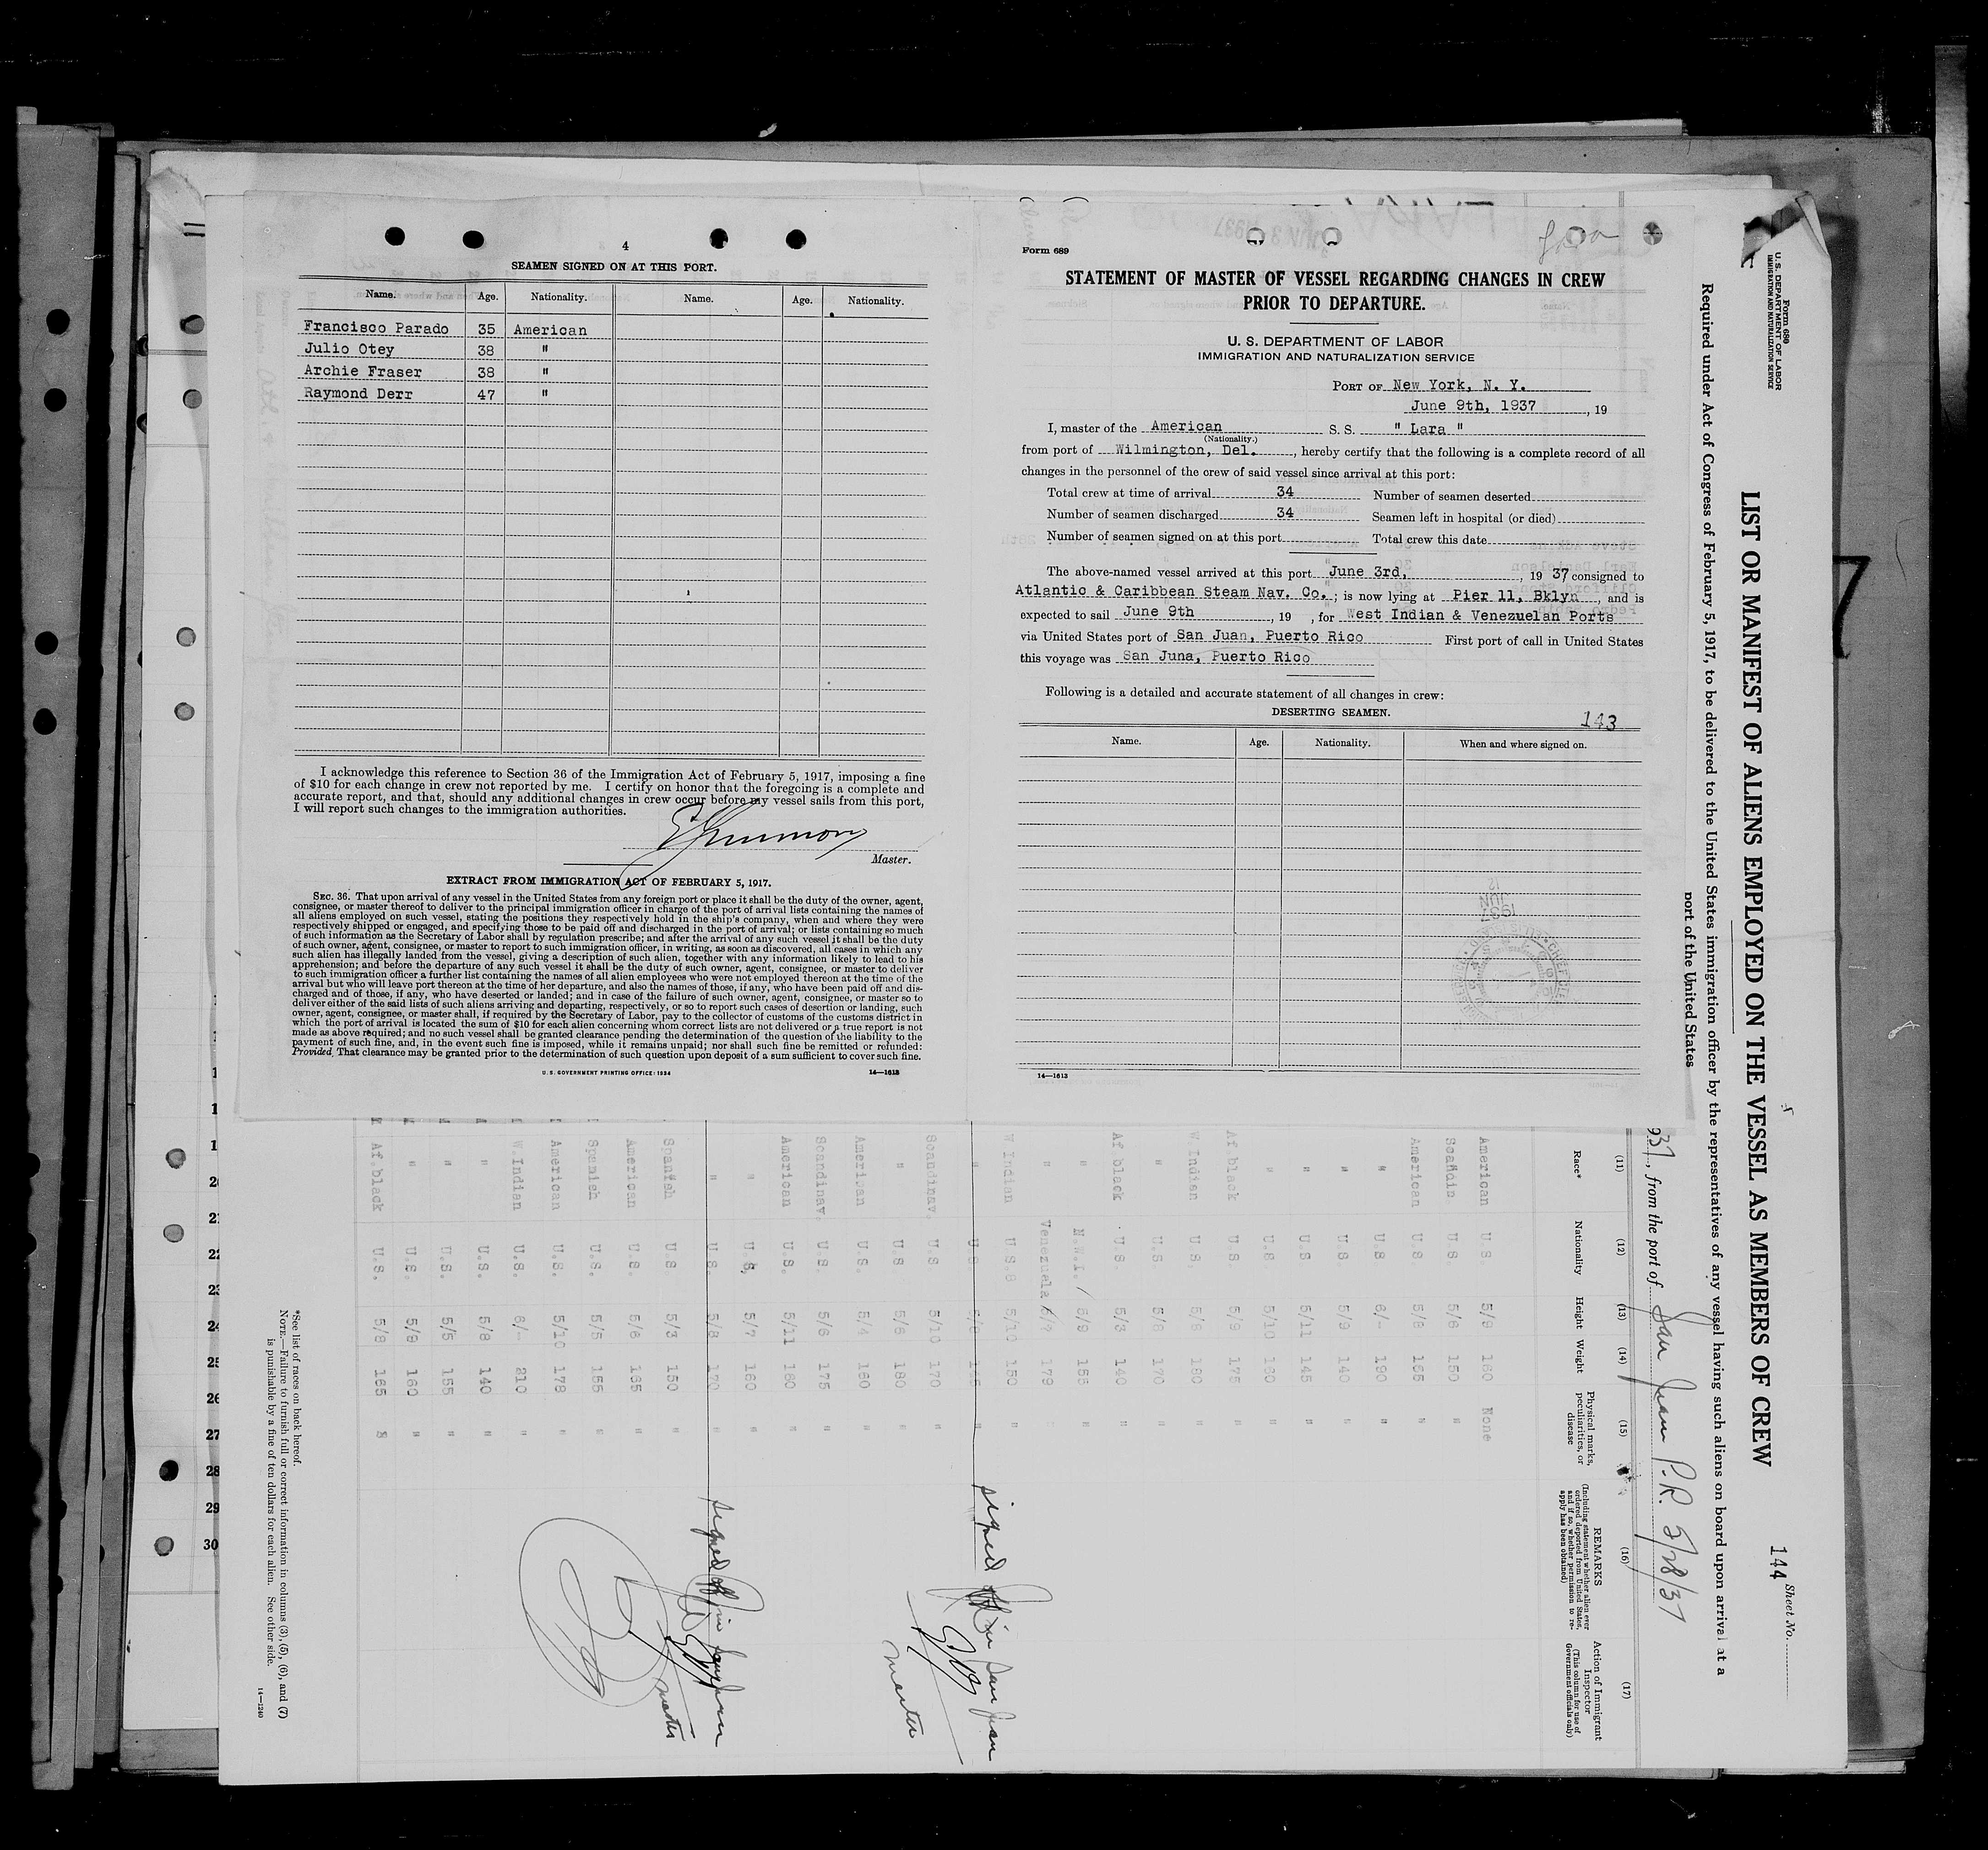 4
SEAMEN SIGNED ON AT THIS PORT.
Name. Age. Nationality. Name. Age. Nationality.
Francisco Parado 35 American
Julio Otey 38 "
Archie Fraser 38 "
Raymond Derr 47 "
I acknowledge this reference to Section 36 of the Immigration Act of February 5, 1917, imposing a fine
of $10 for each change in crew not reported by me. I certify on honor that the foregoing is a complete and
accurate report, and that, should any additional changes in crew occur before my vessel sails from this port,
I will report such changes to the immigration authorities.
Master.
EXTRACT FROM IMMIGRATION ACT OF FEBRUARY 5, 1917.
SEC. 36. That upon arrival of any vessel in the United States from any foreign port or place it shall be the duty of the owner, agent,
consignee, or master thereof to deliver to the principal immigration officer in charge of the port of arrival lists containing the names of
all aliens employed on such vessel, stating the positions they respectively hold in the ship's company, when and where they were
respectively shipped or engaged, and specifying those to be paid off and discharged in the port of arrival; or lists containing so much
of such information as the Secretary of Labor shall by regulation prescribe; and after the arrival of any such vessel it shall be the duty
of such owner, agent, consignee, or master to report to such immigration officer, in writing, as soon as discovered, all cases in which any
such alien has illegally landed from the vessel, giving a description of such alien, together with any information likely to lead to his
apprehension; and before the departure of any such vessel it shall be the duty of such owner, agent, consignee, or master to deliver
to such immigration officer a further list containing the names of all alien employees who were not employed thereon at the time of the
arrival but who will leave port thereon at the time of her departure, and also the names of those, if any, who have been paid off and dis-
charged and of those, if any, who have deserted or landed; and in case of the failure of such owner, agent, consignee, or master so to
deliver either of the said lists of such aliens arriving and departing, respectively, or so to report such cases of desertion or landing, such
owner, agent, consignee, or master shall, if required by the Secretary of Labor, pay to the collector of customs of the customs district in
which the port of arrival is located the sum of $10 for each alien concerning whom correct lists are not delivered or a true report is not
made as above required; and no such vessel shall be granted clearance pending the determination of the question of the liability to the
payment of such fine, and, in the event such fine is imposed, while it remains unpaid; nor shall such fine be remitted or refunded:
Provided, That clearance may be granted prior to the determination of such question upon deposit of a sum sufficient to cover such fine.
U. S. GOVERNMENT PRINTING OFFICE: 1934 14—1613
Form 689
STATEMENT OF MASTER OF VESSEL REGARDING CHANGES IN CREW
PRIOR TO DEPARTURE.
U. S. DEPARTMENT OF LABOR
IMMIGRATION AND NATURALIZATION SERVICE
PORT OF New York, N. Y.
June 9th, 1937, 19
I, master of the American S. S. " Lara "
(Nationality.)
from port of Wilmington, Del., hereby certify that the following is a complete record of all
changes in the personnel of the crew of said vessel since arrival at this port:
Total crew at time of arrival 34 Number of seamen deserted
Number of seamen discharged 34 Seamen left in hospital (or died)
Number of seamen signed on at this port Total crew this date
The above-named vessel arrived at this port June 3rd, , 19 37 consigned to
Atlantic & Caribbean Steam Nav. Co. ; is now lying at Pier 11, Bklyn , and is
expected to sail June 9th , 19 , for West Indian & Venezuelan Ports
via United States port of San Juan, Puerto Rico First port of call in United States
this voyage was San Juna, Puerto Rico
Following is a detailed and accurate statement of all changes in crew:
DESERTING SEAMEN.
143
Name. Age. Nationality. When and where signed on.
1937
JUN
12
14—1613
Form 680
U. S. DEPARTMENT OF LABOR
IMMIGRATION AND NATURALIZATION SERVICE
LIST OR MANIFEST OF ALIENS EMPLOYED ON THE VESSEL AS MEMBERS OF CREW
144
Sheet No.
Required under Act of Congress of February 5, 1917, to be delivered to the United States immigration officer by the representatives of any vessel having such aliens on board upon arrival at a
port of the United States
937, from the port of San Juan P.R. 5/28/37
(11) (12) (13) (14) (15) (16) (17)
Race* Nationality Height Weight Physical marks, peculiarities, or disease
REMARKS
(Including statement whether alien ever ordered deported from United States, and if so, whether permission to re-apply has been obtained)
Action of Immigrant Inspector
(This column for use of Government officials only)
American U S 5/9 160 None
Scandin. U S 5/6 150 "
American U.S. 5/8 165 "
" U S 6/- 190 "
" U S. 5/9 140 "
" U S 5/11 145 "
" U.S 5/10 160 "
Af.black U S. 5/9 175 "
W.Indian U S. 5/8 180 "
" U.S. 5/8 170 "
Af.black U.S. 5/3 140 "
" N.W.I. 5/9 155 "
" Venezuela 179
W Indian U S 5/10 150 "
Scandinav. U.S 5/10 170 "
" U.S 5/6 180 "
American U.S. 5/4 160 "
Scandinav. U.S. 5/6 175 "
American U.S. 5/11 160 "
" U.S. 5/7 160 "
" U.S. 5/8 170 "
Spanish U.S 5/3 150 "
American U.S. 5/6 165 "
Spanish U.S. 5/5 155 "
American U.S. 5/10 178 "
W.Indian U.S. 6/- 210 "
" U.S. 5/8 140 "
" U.S. 5/5 155 "
" U.S. 5/8 160 "
Af.black U.S. 5/8 165 "
signed off in San Juan
Master
signed off in San Juan
Master
*See list of races on back hereof.
NOTE.—Failure to furnish full or correct information in columns (3), (5), (6), and (7)
is punishable by a fine of ten dollars for each alien. See other side.
14—1240
21
22
23
24
25
26
27
28
29
30